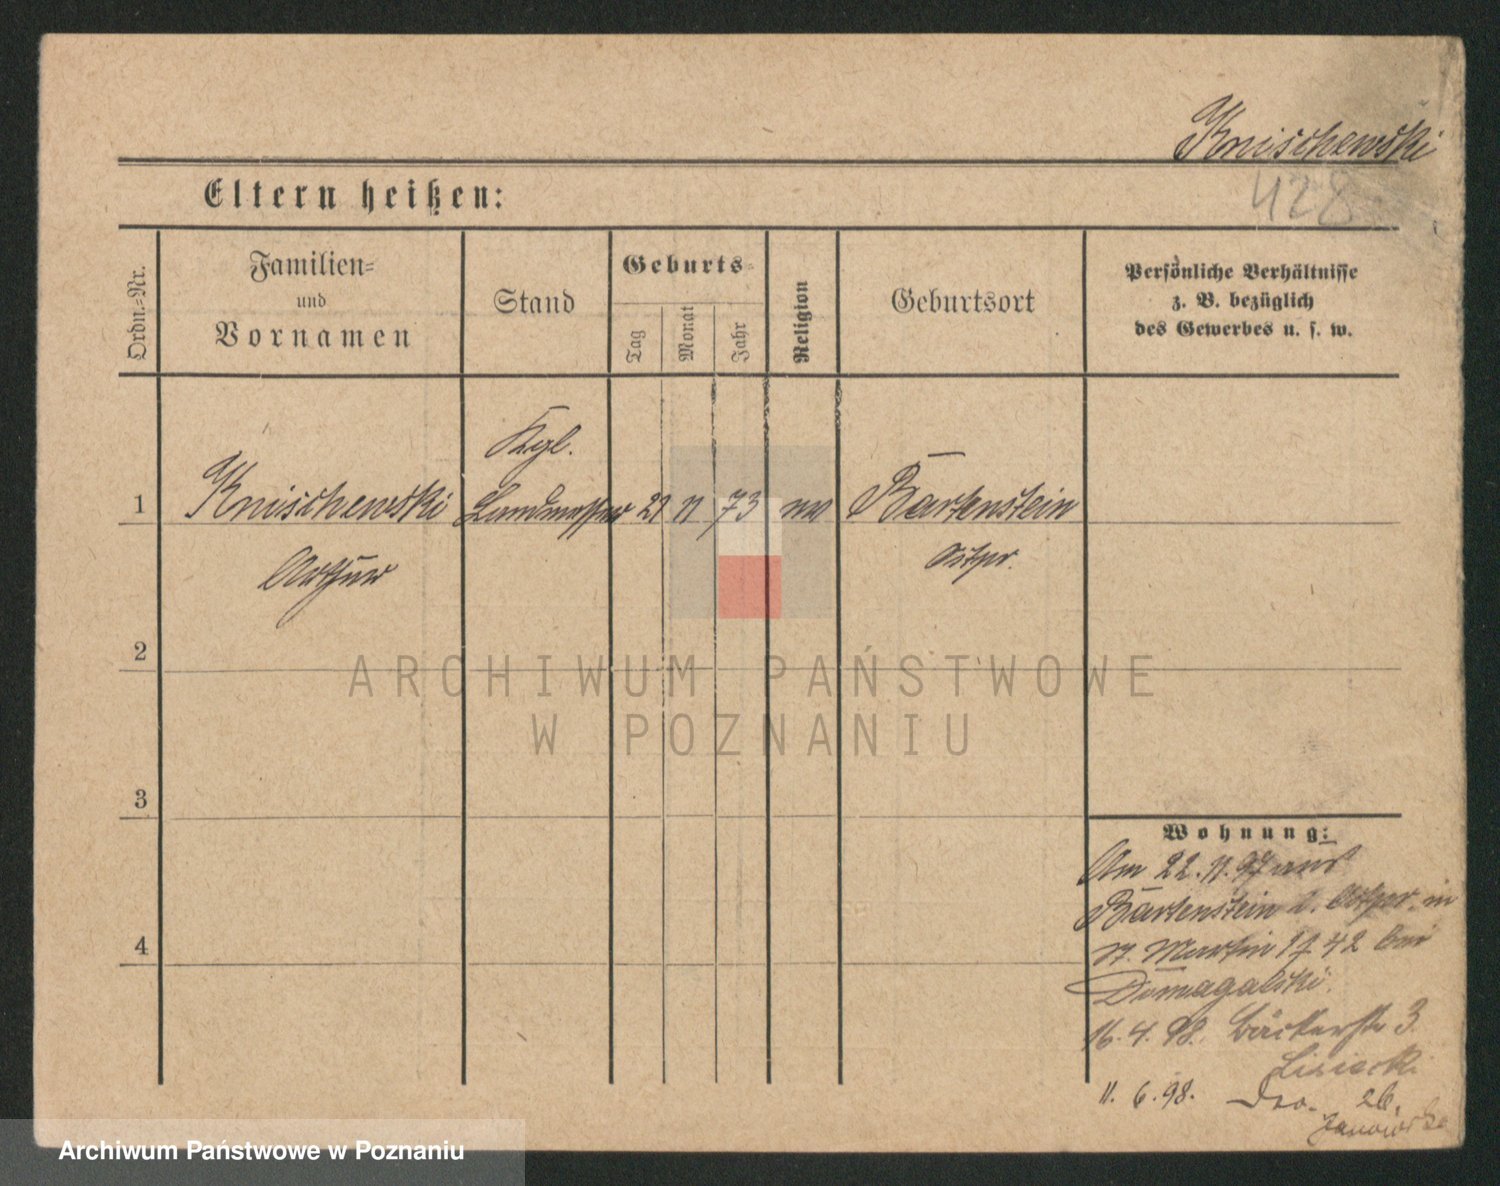 Knischewski
428
Eltern heißen:
Ordn.=Nr.
Familien=
und
Vornamen
Stand
Geburts=
Tag
Monat
Jahr
Religion
Geburtsort
Persönliche Verhältnisse
z. B. bezüglich
des Gewerbes u. s. w.
Kgl.
1 Knischewski Landmesser 21 11 73 ev Bartenstein
Arthur Ostpr.
2
ARCHIWUM PAŃSTWOWE
W POZNANIU
3
4
Wohnung:
Am 22. 11. 97 aus
Bartenstein i. Ostpr. in
St. Martin 42 bei
Domagalski.
16. 4. 98. Bäckerstr 3
Lisiecki
11. 6. 98. 26.
Archiwum Państwowe w Poznaniu